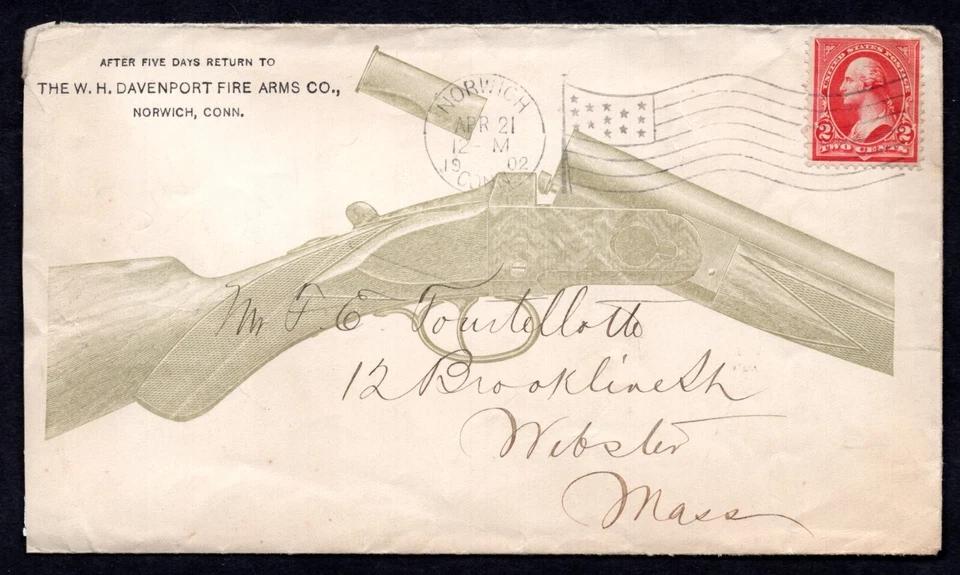 AFTER FIVE DAYS RETURN TO
THE W. H. DAVENPORT FIRE ARMS CO.,
NORWICH, CONN.
NORWICH
APR 21
12 - M
19 02
CONN.
UNITED STATES POSTAGE
2 2
TWO CENTS
Mr F. E. Tourtellotte
12 Brookline St
Webster
Mass